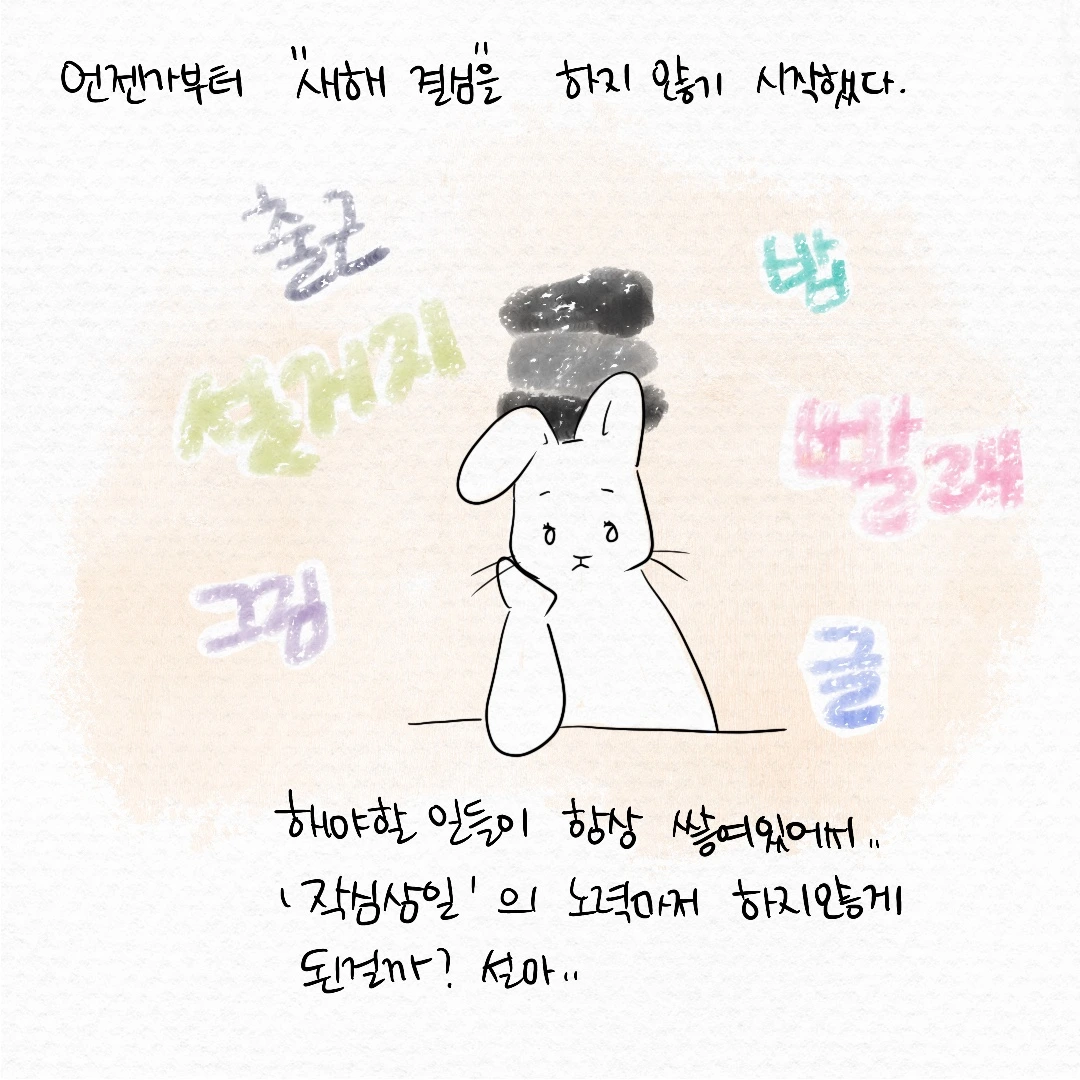 언젠가부터 "새해 결심"을 하지 않기 시작했다.
출근
밥
설거지
빨래
그림
글
해야할 일들이 항상 쌓여있어서..
'작심삼일'의 노력마저 하지않게
된걸까? 설마..